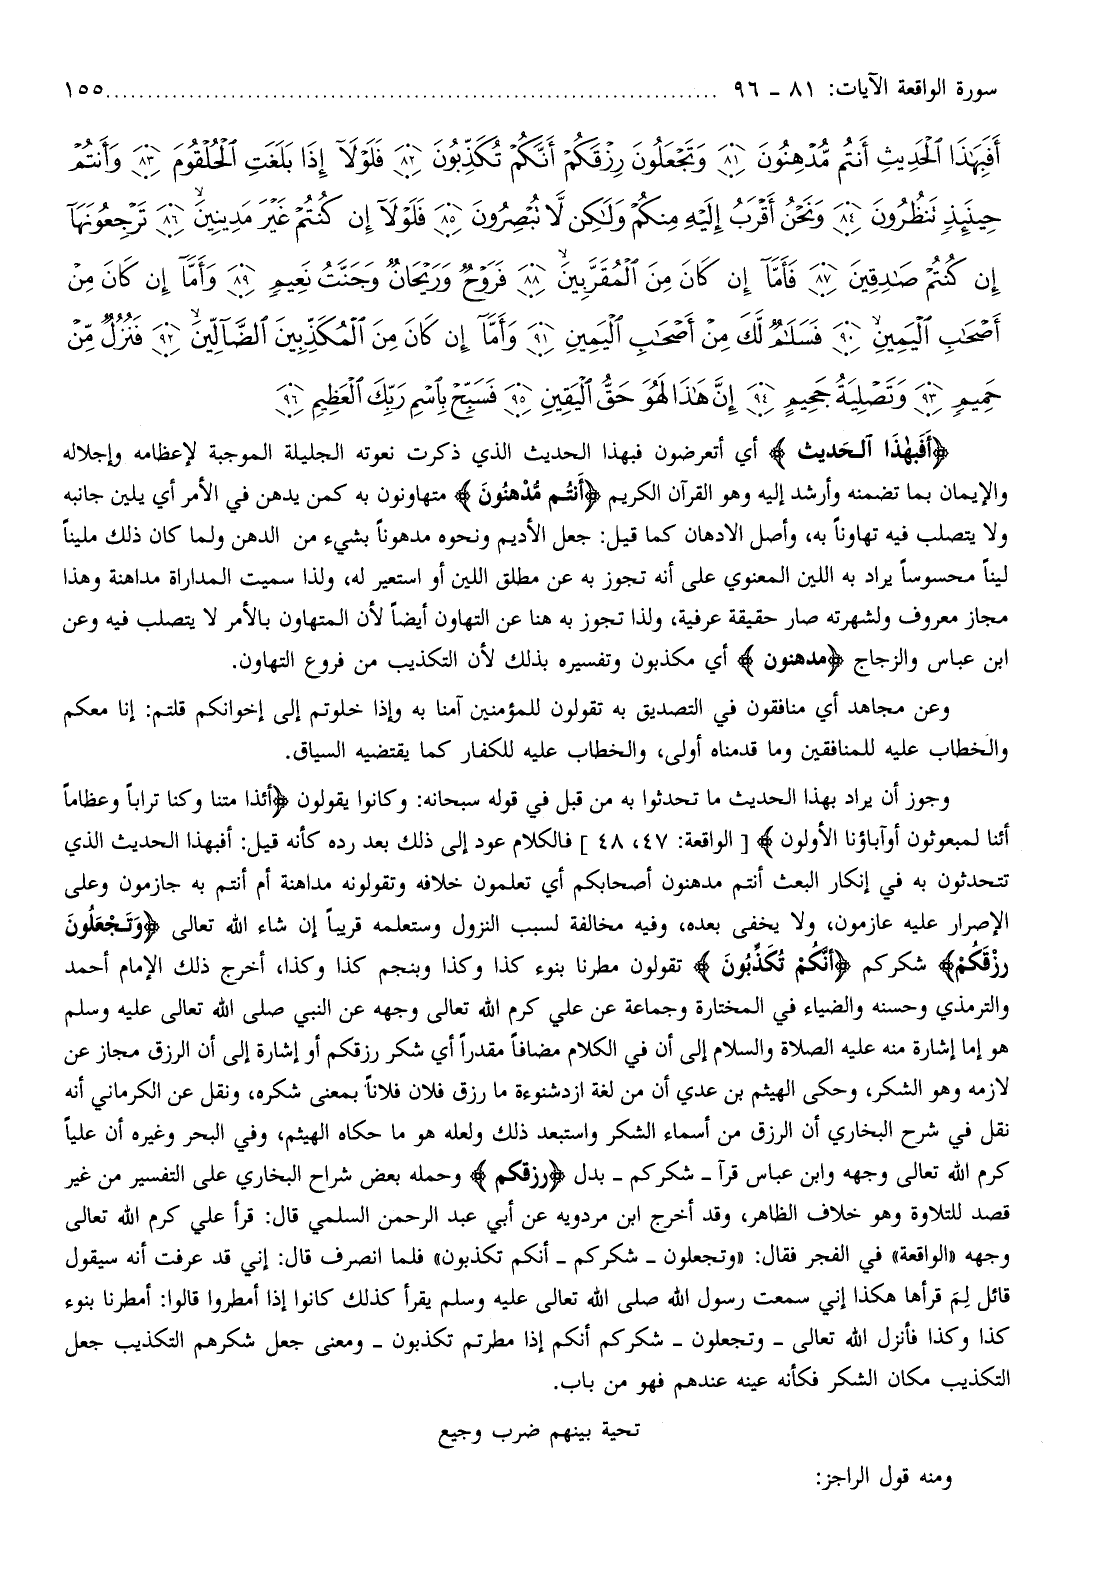 سورة الواقعة الآيات: ٨١ ـ ٩٦ ........................................................................ ١٥٥
أَفَبِهَٰذَا ٱلْحَدِيثِ أَنتُم مُّدْهِنُونَ ﴿٨١﴾ وَتَجْعَلُونَ رِزْقَكُمْ أَنَّكُمْ تُكَذِّبُونَ ﴿٨٢﴾ فَلَوْلَآ إِذَا بَلَغَتِ ٱلْحُلْقُومَ ﴿٨٣﴾ وَأَنتُمْ
حِينَئِذٍ تَنظُرُونَ ﴿٨٤﴾ وَنَحْنُ أَقْرَبُ إِلَيْهِ مِنكُمْ وَلَٰكِن لَّا تُبْصِرُونَ ﴿٨٥﴾ فَلَوْلَآ إِن كُنتُمْ غَيْرَ مَدِينِينَ ۙ ﴿٨٦﴾ تَرْجِعُونَهَآ
إِن كُنتُمْ صَٰدِقِينَ ﴿٨٧﴾ فَأَمَّآ إِن كَانَ مِنَ ٱلْمُقَرَّبِينَ ۙ ﴿٨٨﴾ فَرَوْحٌ وَرَيْحَانٌ وَجَنَّتُ نَعِيمٍ ﴿٨٩﴾ وَأَمَّآ إِن كَانَ مِنْ
أَصْحَٰبِ ٱلْيَمِينِ ۙ ﴿٩٠﴾ فَسَلَٰمٌ لَّكَ مِنْ أَصْحَٰبِ ٱلْيَمِينِ ﴿٩١﴾ وَأَمَّآ إِن كَانَ مِنَ ٱلْمُكَذِّبِينَ ٱلضَّآلِّينَ ۙ ﴿٩٢﴾ فَنُزُلٌ مِّنْ
حَمِيمٍ ﴿٩٣﴾ وَتَصْلِيَةُ جَحِيمٍ ﴿٩٤﴾ إِنَّ هَٰذَا لَهُوَ حَقُّ ٱلْيَقِينِ ﴿٩٥﴾ فَسَبِّحْ بِٱسْمِ رَبِّكَ ٱلْعَظِيمِ ﴿٩٦﴾
﴿أَفَبِهَٰذَا ٱلحَديث﴾ أي أتعرضون فبهذا الحديث الذي ذكرت نعوته الجليلة الموجبة لإعظامه وإجلاله
والإيمان بما تضمنه وأرشد إليه وهو القرآن الكريم ﴿أَنتُم مُّدْهنُونَ﴾ متهاونون به كمن يدهن في الأمر أي يلين جانبه
ولا يتصلب فيه تهاوناً به، وأصل الادهان كما قيل: جعل الأديم ونحوه مدهوناً بشيء من الدهن ولما كان ذلك مليناً
ليناً محسوساً يراد به اللين المعنوي على أنه تجوز به عن مطلق اللين أو استعير له، ولذا سميت المداراة مداهنة وهذا
مجاز معروف ولشهرته صار حقيقة عرفية، ولذا تجوز به هنا عن التهاون أيضاً لأن المتهاون بالأمر لا يتصلب فيه وعن
ابن عباس والزجاج ﴿مدهنون﴾ أي مكذبون وتفسيره بذلك لأن التكذيب من فروع التهاون.
وعن مجاهد أي منافقون في التصديق به تقولون للمؤمنين آمنا به وإذا خلوتم إلى إخوانكم قلتم: إنا معكم
والخطاب عليه للمنافقين وما قدمناه أولى، والخطاب عليه للكفار كما يقتضيه السياق.
وجوز أن يراد بهذا الحديث ما تحدثوا به من قبل في قوله سبحانه: وكانوا يقولون ﴿أئذا متنا وكنا تراباً وعظاماً
أئنا لمبعوثون أوآباؤنا الأولون﴾ [ الواقعة: ٤٧، ٤٨ ] فالكلام عود إلى ذلك بعد رده كأنه قيل: أفبهذا الحديث الذي
تتحدثون به في إنكار البعث أنتم مدهنون أصحابكم أي تعلمون خلافه وتقولونه مداهنة أم أنتم به جازمون وعلى
الإصرار عليه عازمون، ولا يخفى بعده، وفيه مخالفة لسبب النزول وستعلمه قريباً إن شاء الله تعالى ﴿وَتَجْعَلُونَ
رزْقَكُمْ﴾ شكركم ﴿أنَّكُمْ تُكَذِّبُونَ﴾ تقولون مطرنا بنوء كذا وكذا وبنجم كذا وكذا، أخرج ذلك الإمام أحمد
والترمذي وحسنه والضياء في المختارة وجماعة عن علي كرم الله تعالى وجهه عن النبي صلى الله تعالى عليه وسلم
هو إما إشارة منه عليه الصلاة والسلام إلى أن في الكلام مضافاً مقدراً أي شكر رزقكم أو إشارة إلى أن الرزق مجاز عن
لازمه وهو الشكر، وحكى الهيثم بن عدي أن من لغة ازدشنوءة ما رزق فلان فلاناً بمعنى شكره، ونقل عن الكرماني أنه
نقل في شرح البخاري أن الرزق من أسماء الشكر واستبعد ذلك ولعله هو ما حكاه الهيثم، وفي البحر وغيره أن علياً
كرم الله تعالى وجهه وابن عباس قرآ ـ شكركم ـ بدل ﴿رزقكم﴾ وحمله بعض شراح البخاري على التفسير من غير
قصد للتلاوة وهو خلاف الظاهر، وقد أخرج ابن مردويه عن أبي عبد الرحمن السلمي قال: قرأ علي كرم الله تعالى
وجهه «الواقعة» في الفجر فقال: «وتجعلون ـ شكركم ـ أنكم تكذبون» فلما انصرف قال: إني قد عرفت أنه سيقول
قائل لِمَ قرأها هكذا إني سمعت رسول الله صلى الله تعالى عليه وسلم يقرأ كذلك كانوا إذا أمطروا قالوا: أمطرنا بنوء
كذا وكذا فأنزل الله تعالى ـ وتجعلون ـ شكركم أنكم إذا مطرتم تكذبون ـ ومعنى جعل شكرهم التكذيب جعل
التكذيب مكان الشكر فكأنه عينه عندهم فهو من باب.
تحية بينهم ضرب وجيع
ومنه قول الراجز: